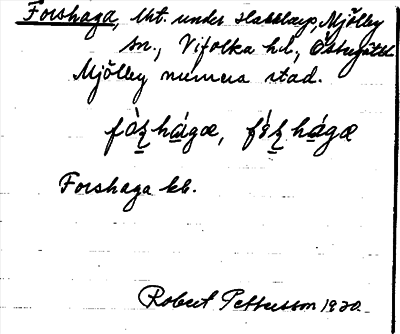 Forshaga, lht. under Hasslarp, Mjölby
sn., Vifolka hd., Östergötl.
Mjölby numera stad.
Forshaga kb.
Robert Pettersson 1930.